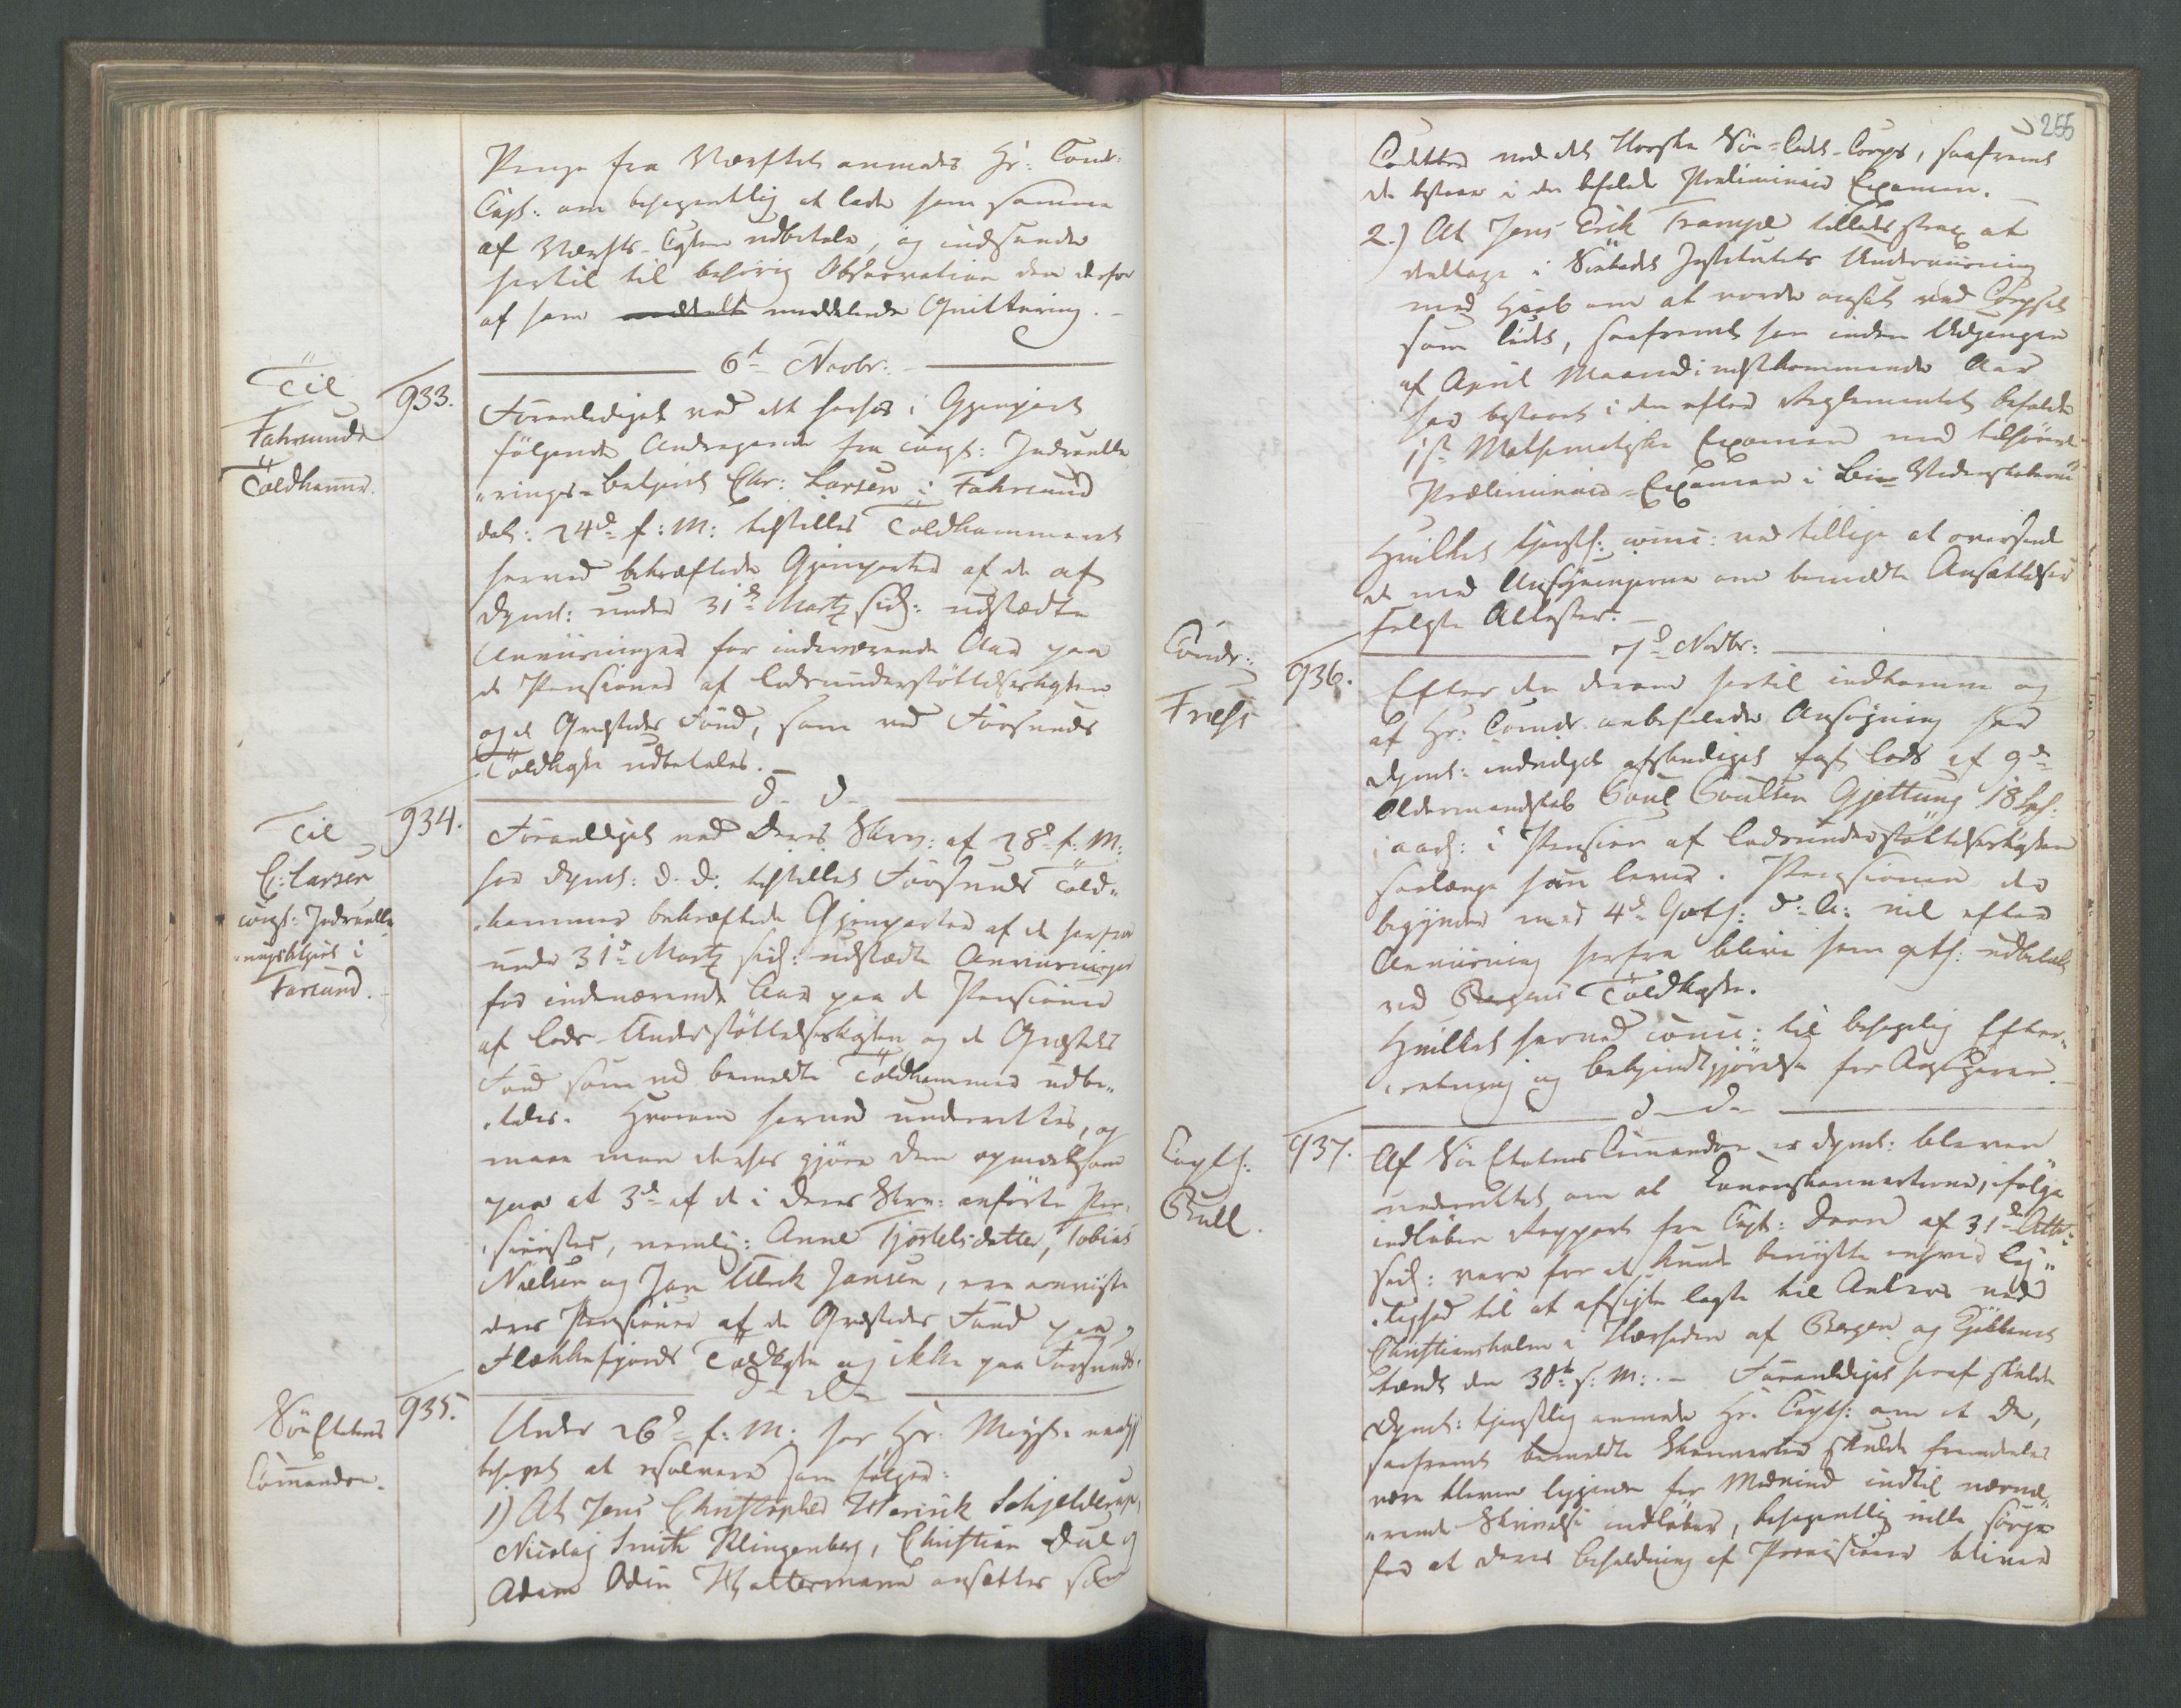 Penge fra Værftet anmodes Hr: Comd:
Capt: om behageligt at lade ham samme
af Værfts-Casßen udbetale, og indsende
hertil til behørig Observation den derfor
af ham meddelende Quittering.
6te Novbr:
Til
Fahrsunds
Toldkammer.
933.
Foranlediget ved det herhos i Gjenpart
følgende Andragende fra const: Indrulle-
"rings-Betjent Chr: Larsen i Fahrsund
dat: 24de f: M: tilstilles Toldkammeret
herved bekræftede Gjenparter af de af
Dpmt: under 31te Martz sidst: udstædte
Anviisninger for indeværende Aar paa
de Pensioner af Lodsunderstøttelseskassen
og de Qvæstedes Fond, som ved Farsunds
Toldkasse udbetales.
d. d.
Til
C: Larsen
const: Indrulle-
"ringsbetjent i
Farsund.
934.
Foranlediget ved Deres Skriv: af 28de f: M:
har Dpmt: d. d. tilstillet Farsunds Told-
"kammer bekræftede Gjenparter af de herfra
under 31te Martz sidst: udstædte Anviisninger
for indeværende Aar paa de Pensioner
af Lods-Understøttelseskassen og de Qvæstedes
Fond som ved bemeldte Toldkammer udbe-
"tales. Hvorom herved underrettes, og
maa man derhos gjøre Dem opmærksom
paa at 3de af de i Deres Skriv: anførte Pen-
"sionister, nemlig: Anne Tjostelsdatter, Tobias
Nielsen og Jan Ulrik Jansen, ere anviiste
deres Pensioner af de Qvæstedes Fond paa
Flekkefjords Toldkasse og ikke paa Farsunds.
d. d.
Søe Etatens
Commando.
935.
Under 26de f: M: har Hs: Majst: naadigst
behaget at resolvere som følger:
1) At Jens Christopher Werinik Schjelderup,
Nicolaj Smith Klingenberg, Christian Due og
Adam Odin Waltermann ansættes som
255
Cadetter ved det Norske Søe-Cadet-Corps, saafremt
de bestaae i den befalede Præliminair Examen.
2.) At Jens Erik Trampe tillades strax at
deltage i Søecadet Institutets Underviisning
med Haab om at vorde ansat ved Corpset
som Cadet, saafremt han inden Udgangen
af April Maaned i næstkommende Aar
har bestaaet i den efter Reglementet befalede
1ste Mathematiske Examen med tilhørende
Præliminair-Examen i Bie-Videnskaberne
Hvilket tjenstl: comm: ved tillige at oversende
de med Ansøgningerne om bemeldte Ansættelser
fulgte Attester.
7de Novbr:
Comdr:
Friess
936.
Efter den derom hertil indkomne og
af Hr: Comdr: anbefalede Ansøgning har
Dpmt: indvilget afskediget fast Lods af 9de
Oldermandskab Poul Poulsen Gjettung 18 Spd:
aarl: i Pension af Lodsunderstøttelseskassen
saalænge han lever. Pensionen der
begynder med 4de Qvart: d: A: vil efter
Anviisning herfra blive ham qvart: udbetalt
ved Bergens Toldkasse.
Hvilket herved comm: til behagelig Efter-
"retning og Bekjendtgjørelse for Ansøgeren.
d. d.
Captl:
Bull.
937.
Af Søe Etatens Commando er Dpmt: bleven
underrettet om at Canonskonnerterne, ifølge
indløben Rapport fra Capt: Dorn af 31te Octbr:
sidst: vare for at kunde benytte enhver Lej-
"lighed til at afsejle lagte til Ankers ved
Christiansholm i Nærheden af Bergen og Kjøllend
tændt den 30te s: M:. Foranlediget heraf skulde
Dpmt: tjenstlig anmode Hr. Captl: om at De,
saafremt bemeldte Skonnerter skulde fremdeles
være bleven liggende for Modvind indtil nærvæ-
"rende Skrivelse indløber, behageligt ville sørge
for at deres Beholdning af Provisioner bliver